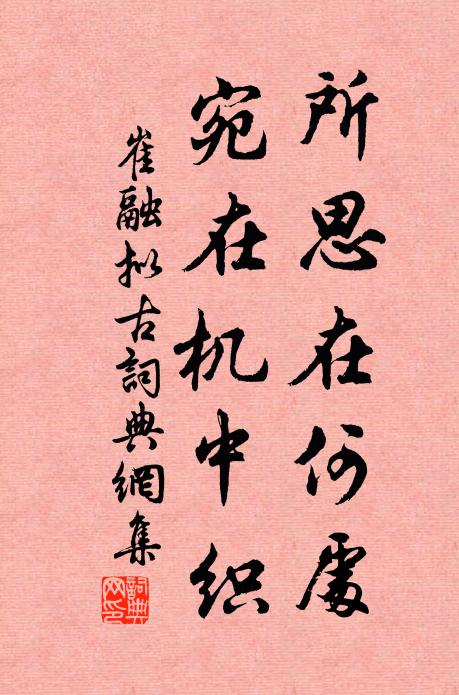 所思在何處
宛在机中织
崔融拟古詞典網集
詞典
网印